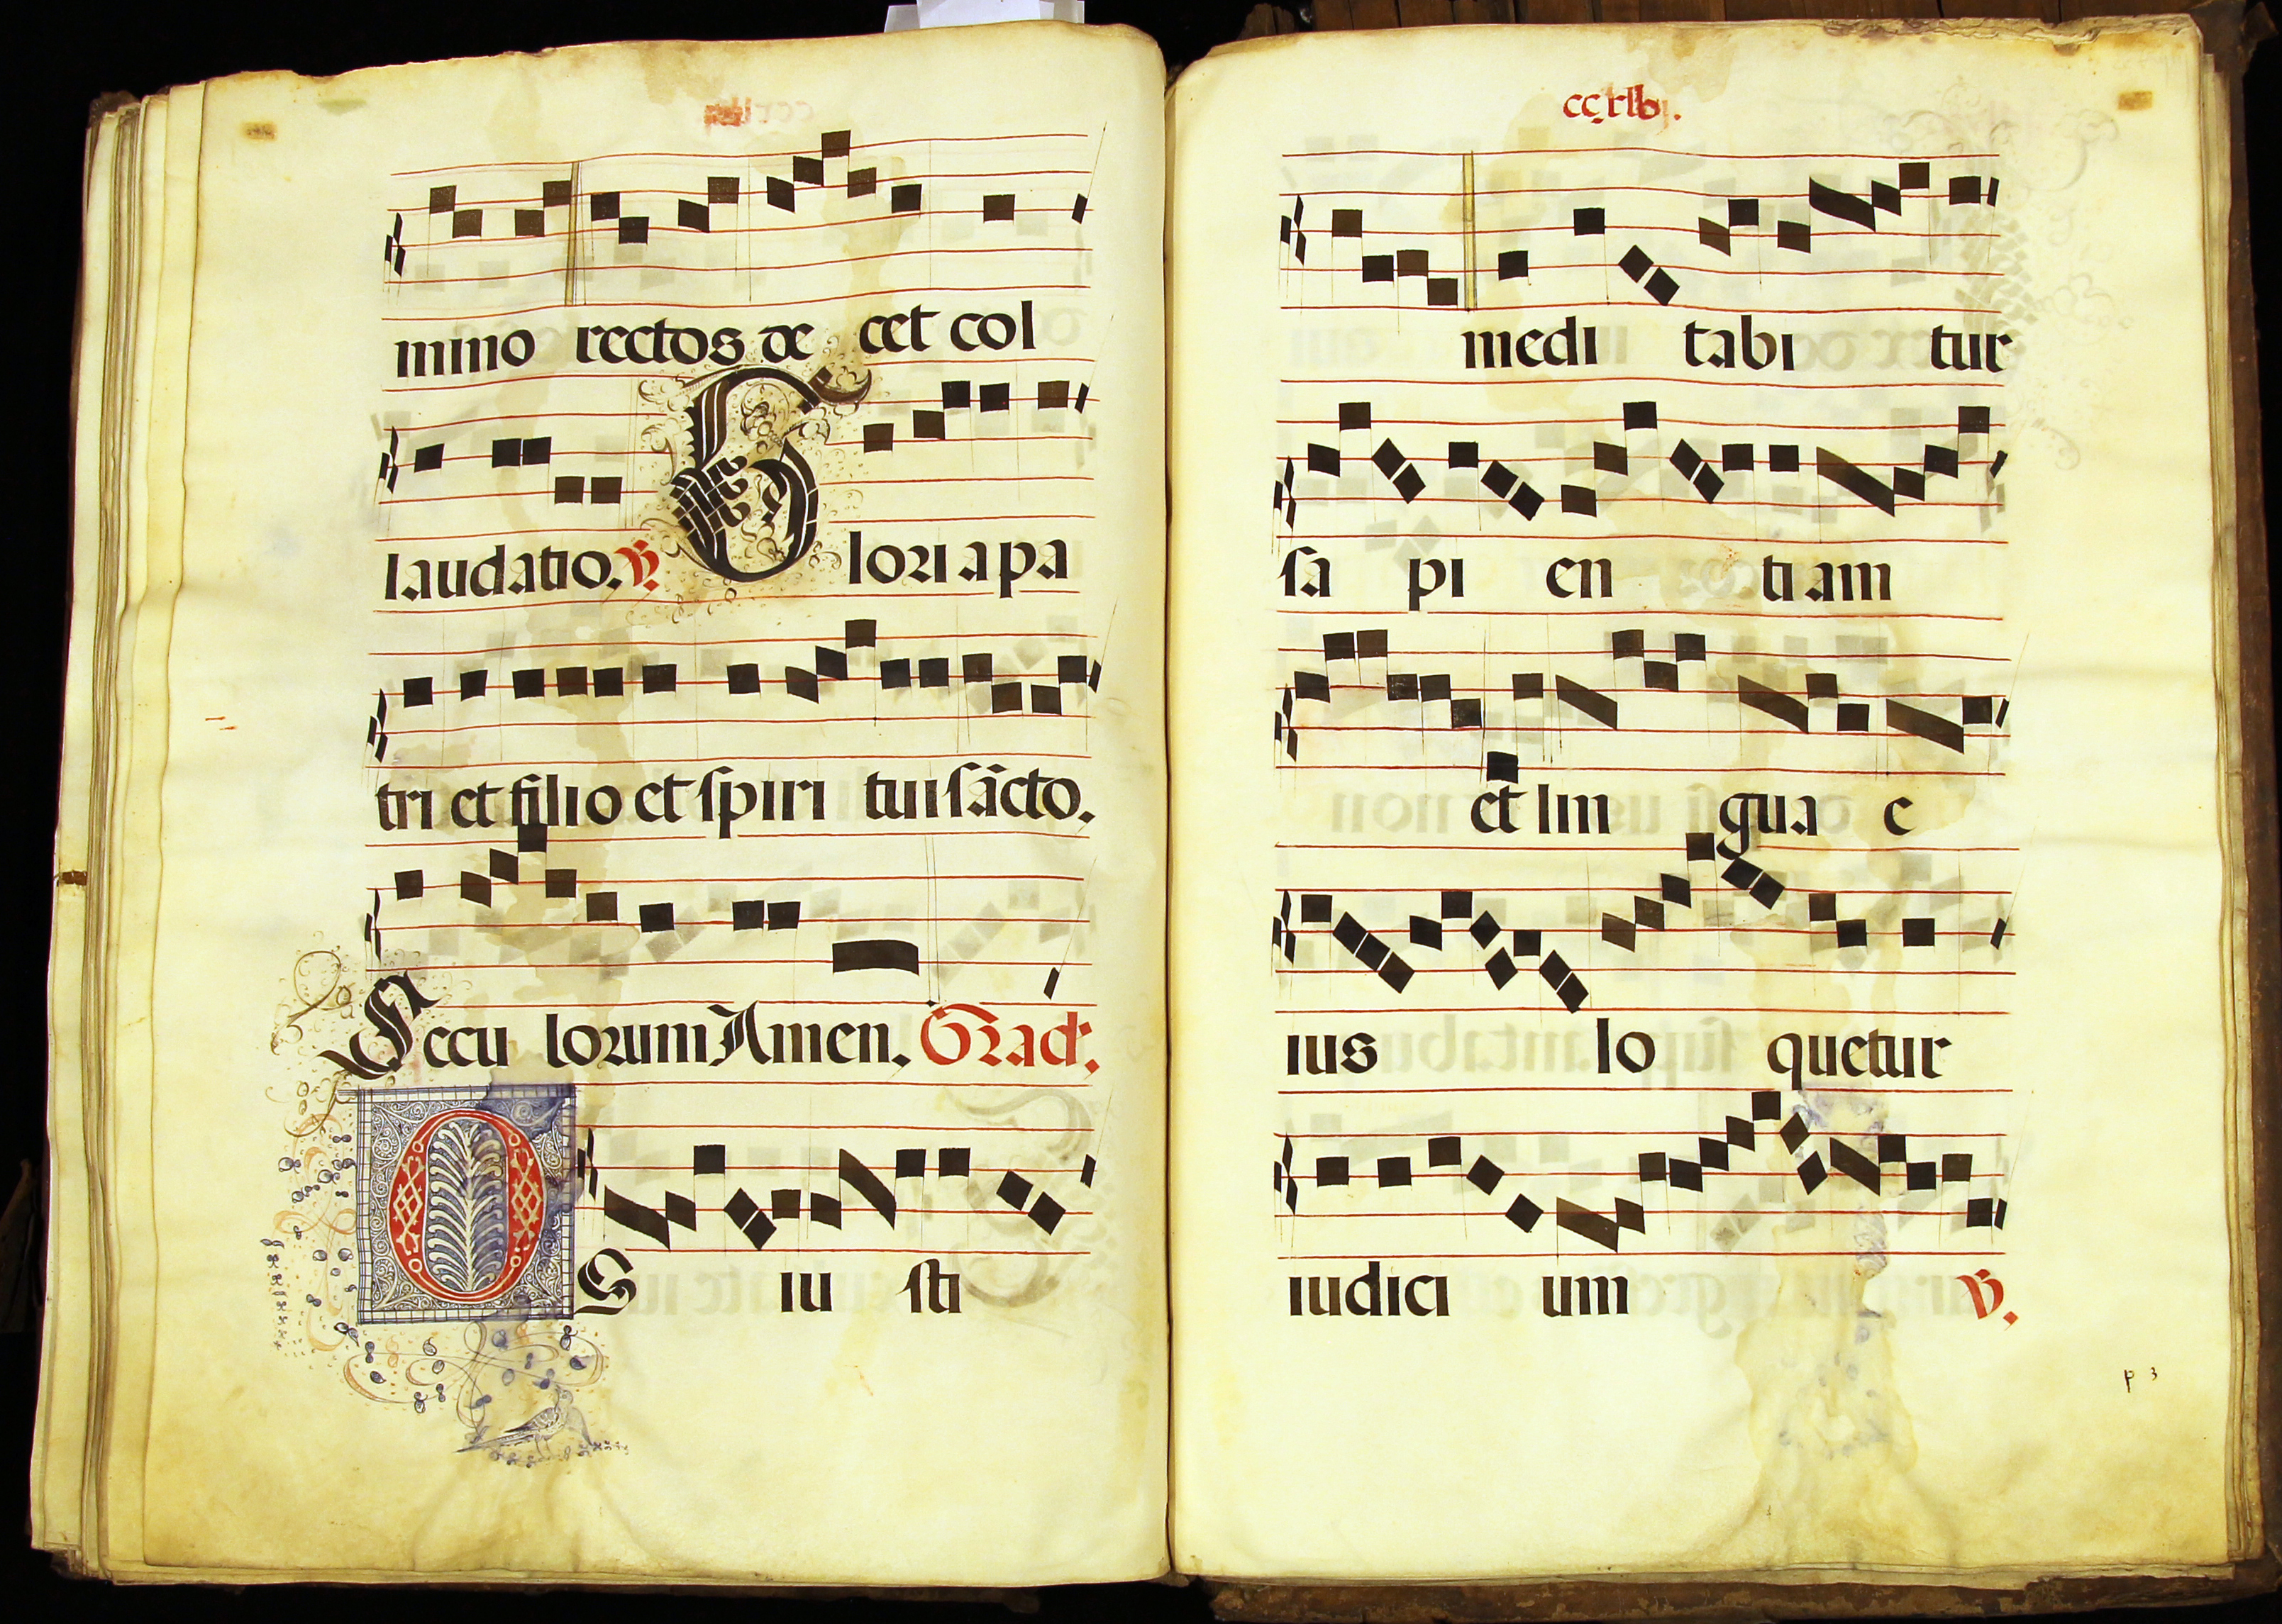 mino rectos de cet col
laudatio. ℣. Gloria pa
tri et filio et spiri tui sãcto.
Seculorum Amen. Grad.
OS iusti
ccxlvj.
medi tabi tur
sa pi en tiam
et lin gua e
ius lo quetur
iudici um ℣.
p 3